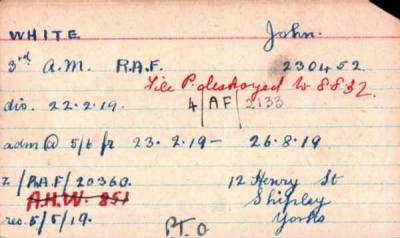 WHITE John.
3rd A.M. R.A.F. 230452
File P. destroyed W 8832
dis. 22.2.19. 4/AF/2133
adm @ 5/6 fr 23.2.19 — 26.8.19
Z/RAF/20360. 12 Henry St
A.H.W. 851 Shipley
rec. 5/5/19. Yorks
P.T.O